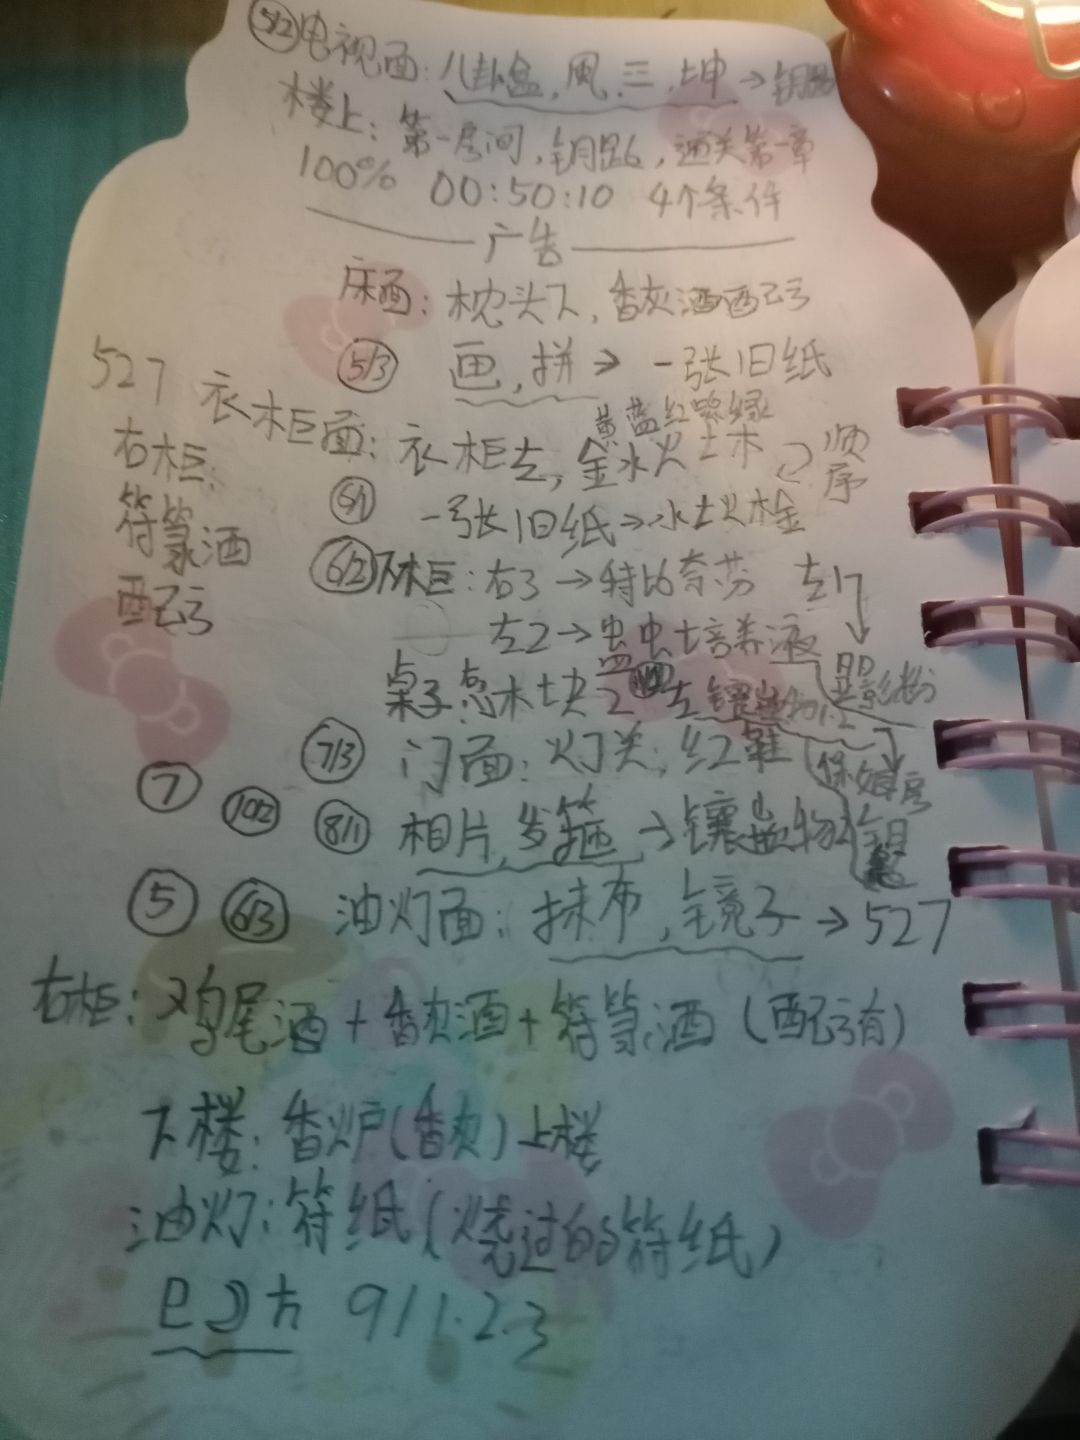 5/2 电视面：八卦盒，風，三，坤→钥匙
楼上：第一房间，钥匙，通关第一章
100% 00:50:10 4个条件
广告
床面：枕头下，香灰酒配方
5/3 画，拼→一张旧纸
527
黄蓝红 绿
衣柜面：衣柜左，金水火土木 顺序
右柜：
符箓酒
配方
5/1 一张旧纸→水土火木金
6/2 下柜：右3→特比奈芬 左1
左2→虫虫培养液 显影粉
桌子 木块2 左镶嵌物1.2
7/3 门面：灯关，红鞋 保姆房
7 10/2 8/1 相片，发箍→镶嵌物2 钥
5 6/3 油灯面：抹布，镜子→527
右柜：鸡尾酒+香灰酒+符箓酒（配方有）
下楼：香炉（香灰）上楼
油灯：符纸（烧过的符纸）
9/1.2.3